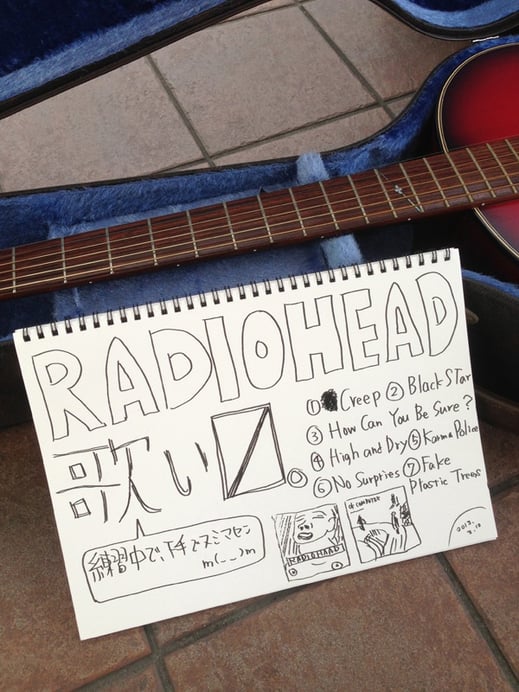 RADIOHEAD
歌い〼。
① Creep ② Black Star
③ How Can You Be Sure?
④ High and Dry ⑤ Karma Police
⑥ No Surpries ⑦ Fake
Plastic Trees
練習中で、下手でスミマセン
m(_ _)m
OK COMPUTER